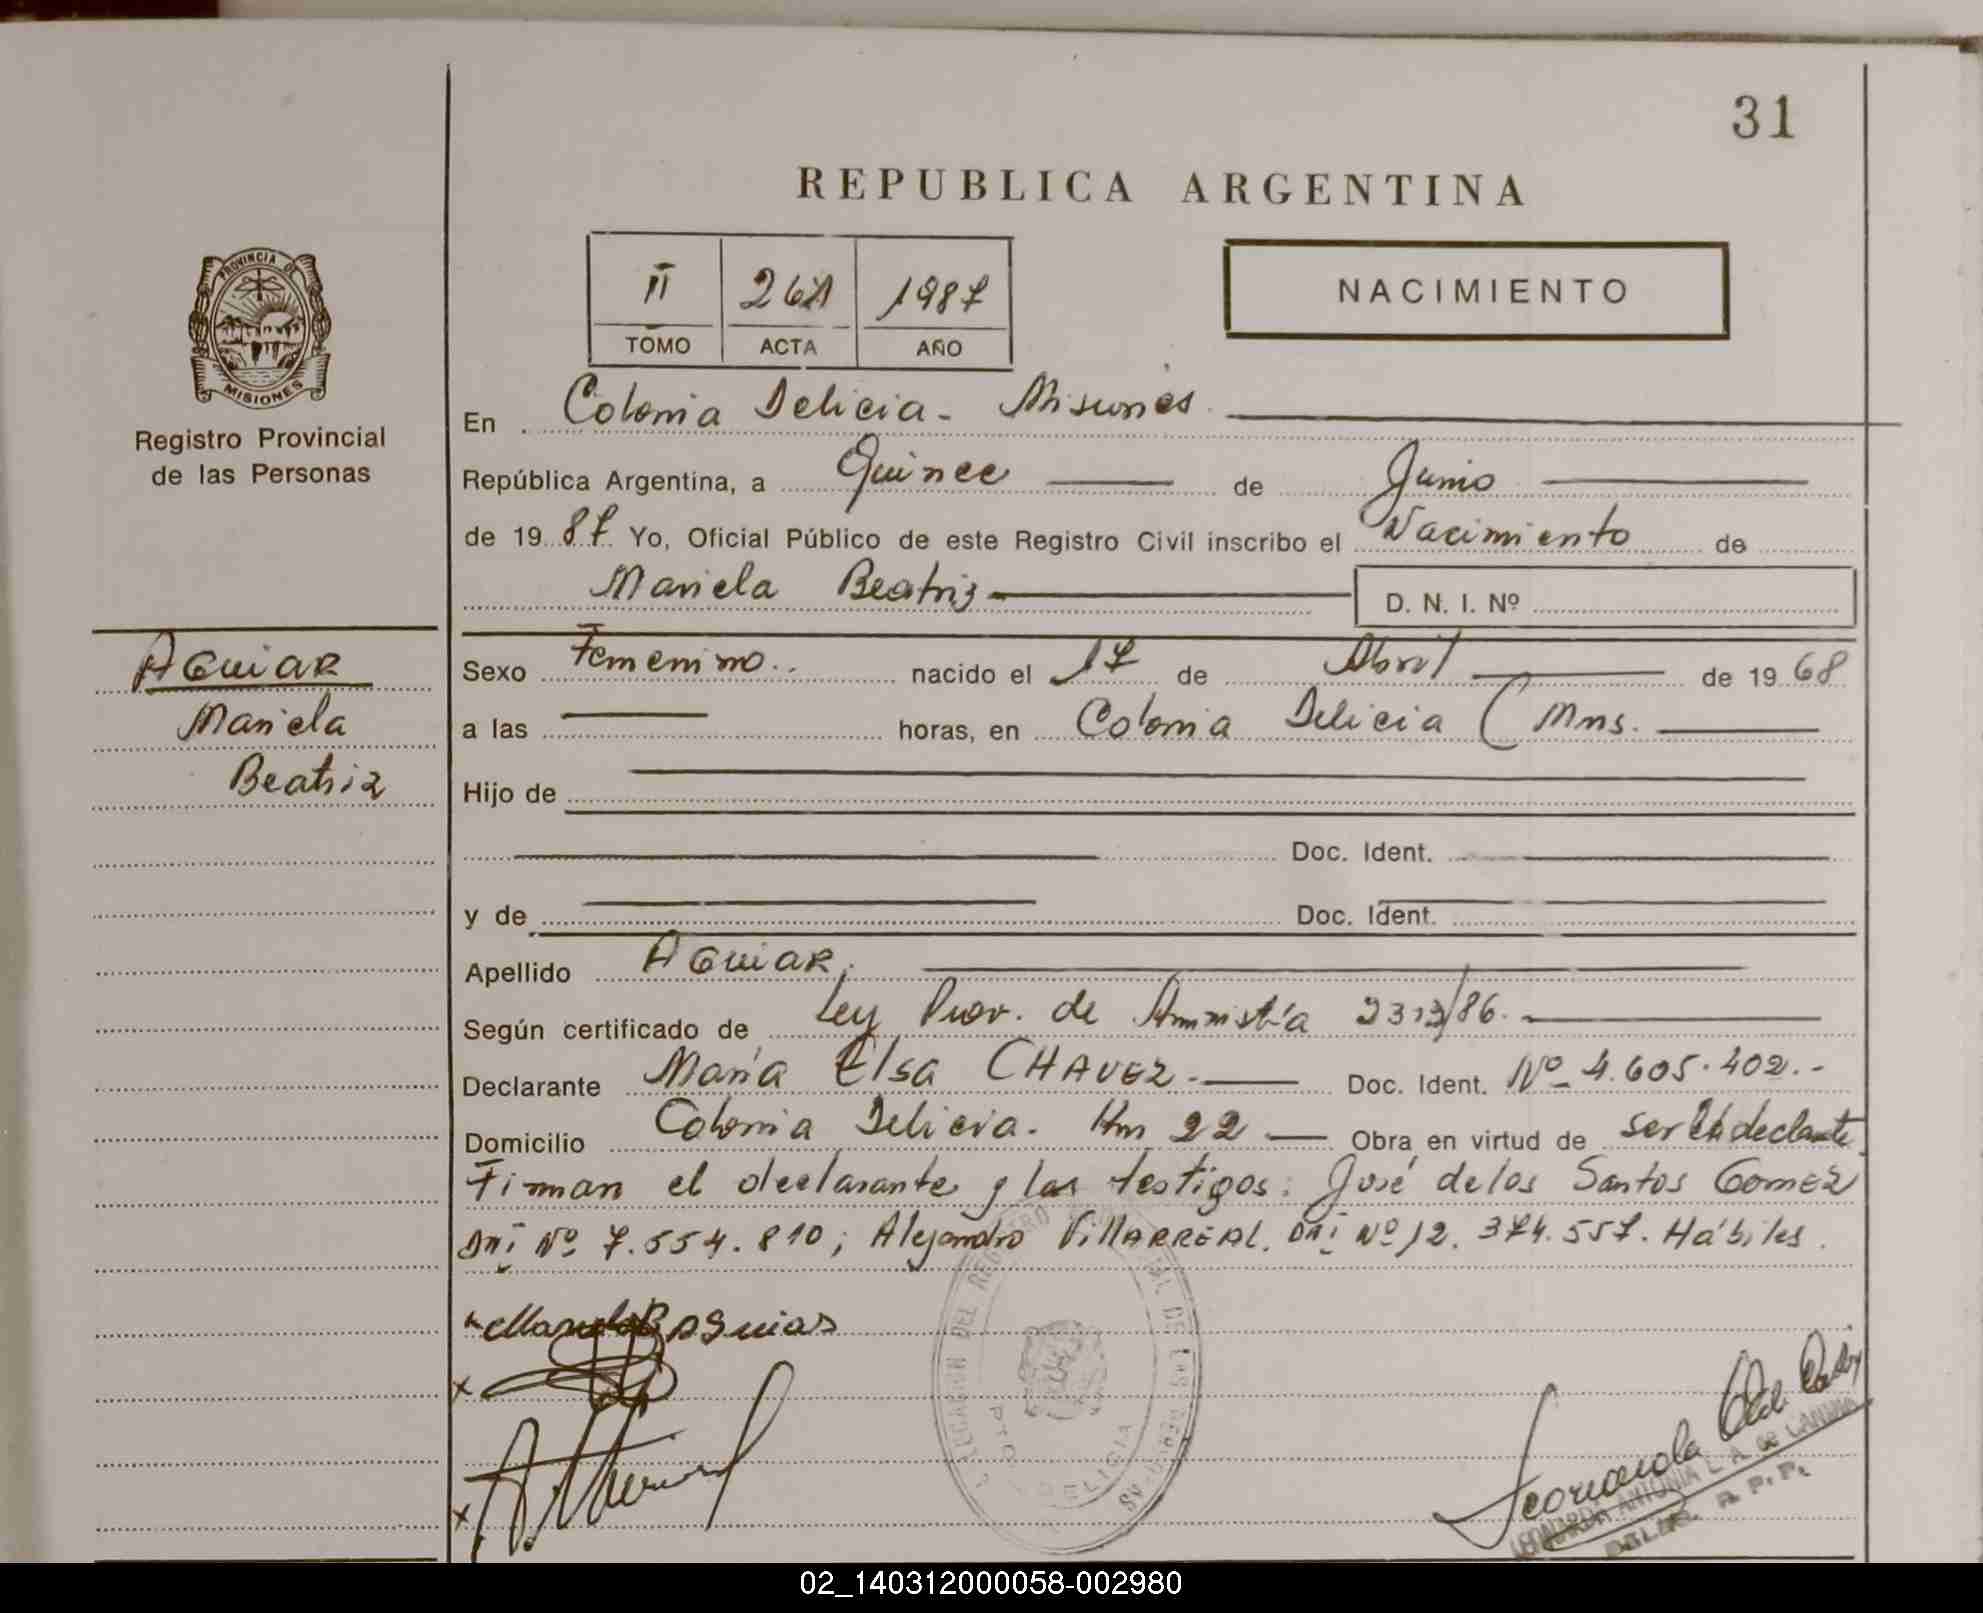 31
REPUBLICA ARGENTINA
II 261 1987
TOMO ACTA AÑO
NACIMIENTO
PROVINCIA DE
MISIONES
Registro Provincial
de las Personas
En Colonia Delicia - Misiones
República Argentina, a Quince de Junio
de 19 87 Yo, Oficial Público de este Registro Civil inscribo el Nacimiento de
Mariela Beatriz D. N. I. Nº
AGUIAR
Mariela
Beatriz
Sexo Femenino.. nacido el 17 de Abril de 19 68
a las horas, en Colonia Delicia (Mns.
Hijo de
Doc. Ident.
y de Doc. Ident.
Apellido AGUIAR.
Según certificado de Ley Prov. de Amnistía 2313/86.
Declarante María Elsa CHAVEZ.- Doc. Ident. Nº 4.605.402.-
Domicilio Colonia Delicia. Km 22 Obra en virtud de ser la declante.
Firman el declarante y los testigos: José de los Santos GOMEZ
DNI Nº 7.554.810; Alejandro VILLARREAL. DNI Nº 12.374.557. Hábiles.
DEL REGISTRO DE LAS
DELICIA
Leonarda
LEONARDA ANTONIA L. A. de
R. P. P.
02_140312000058-002980